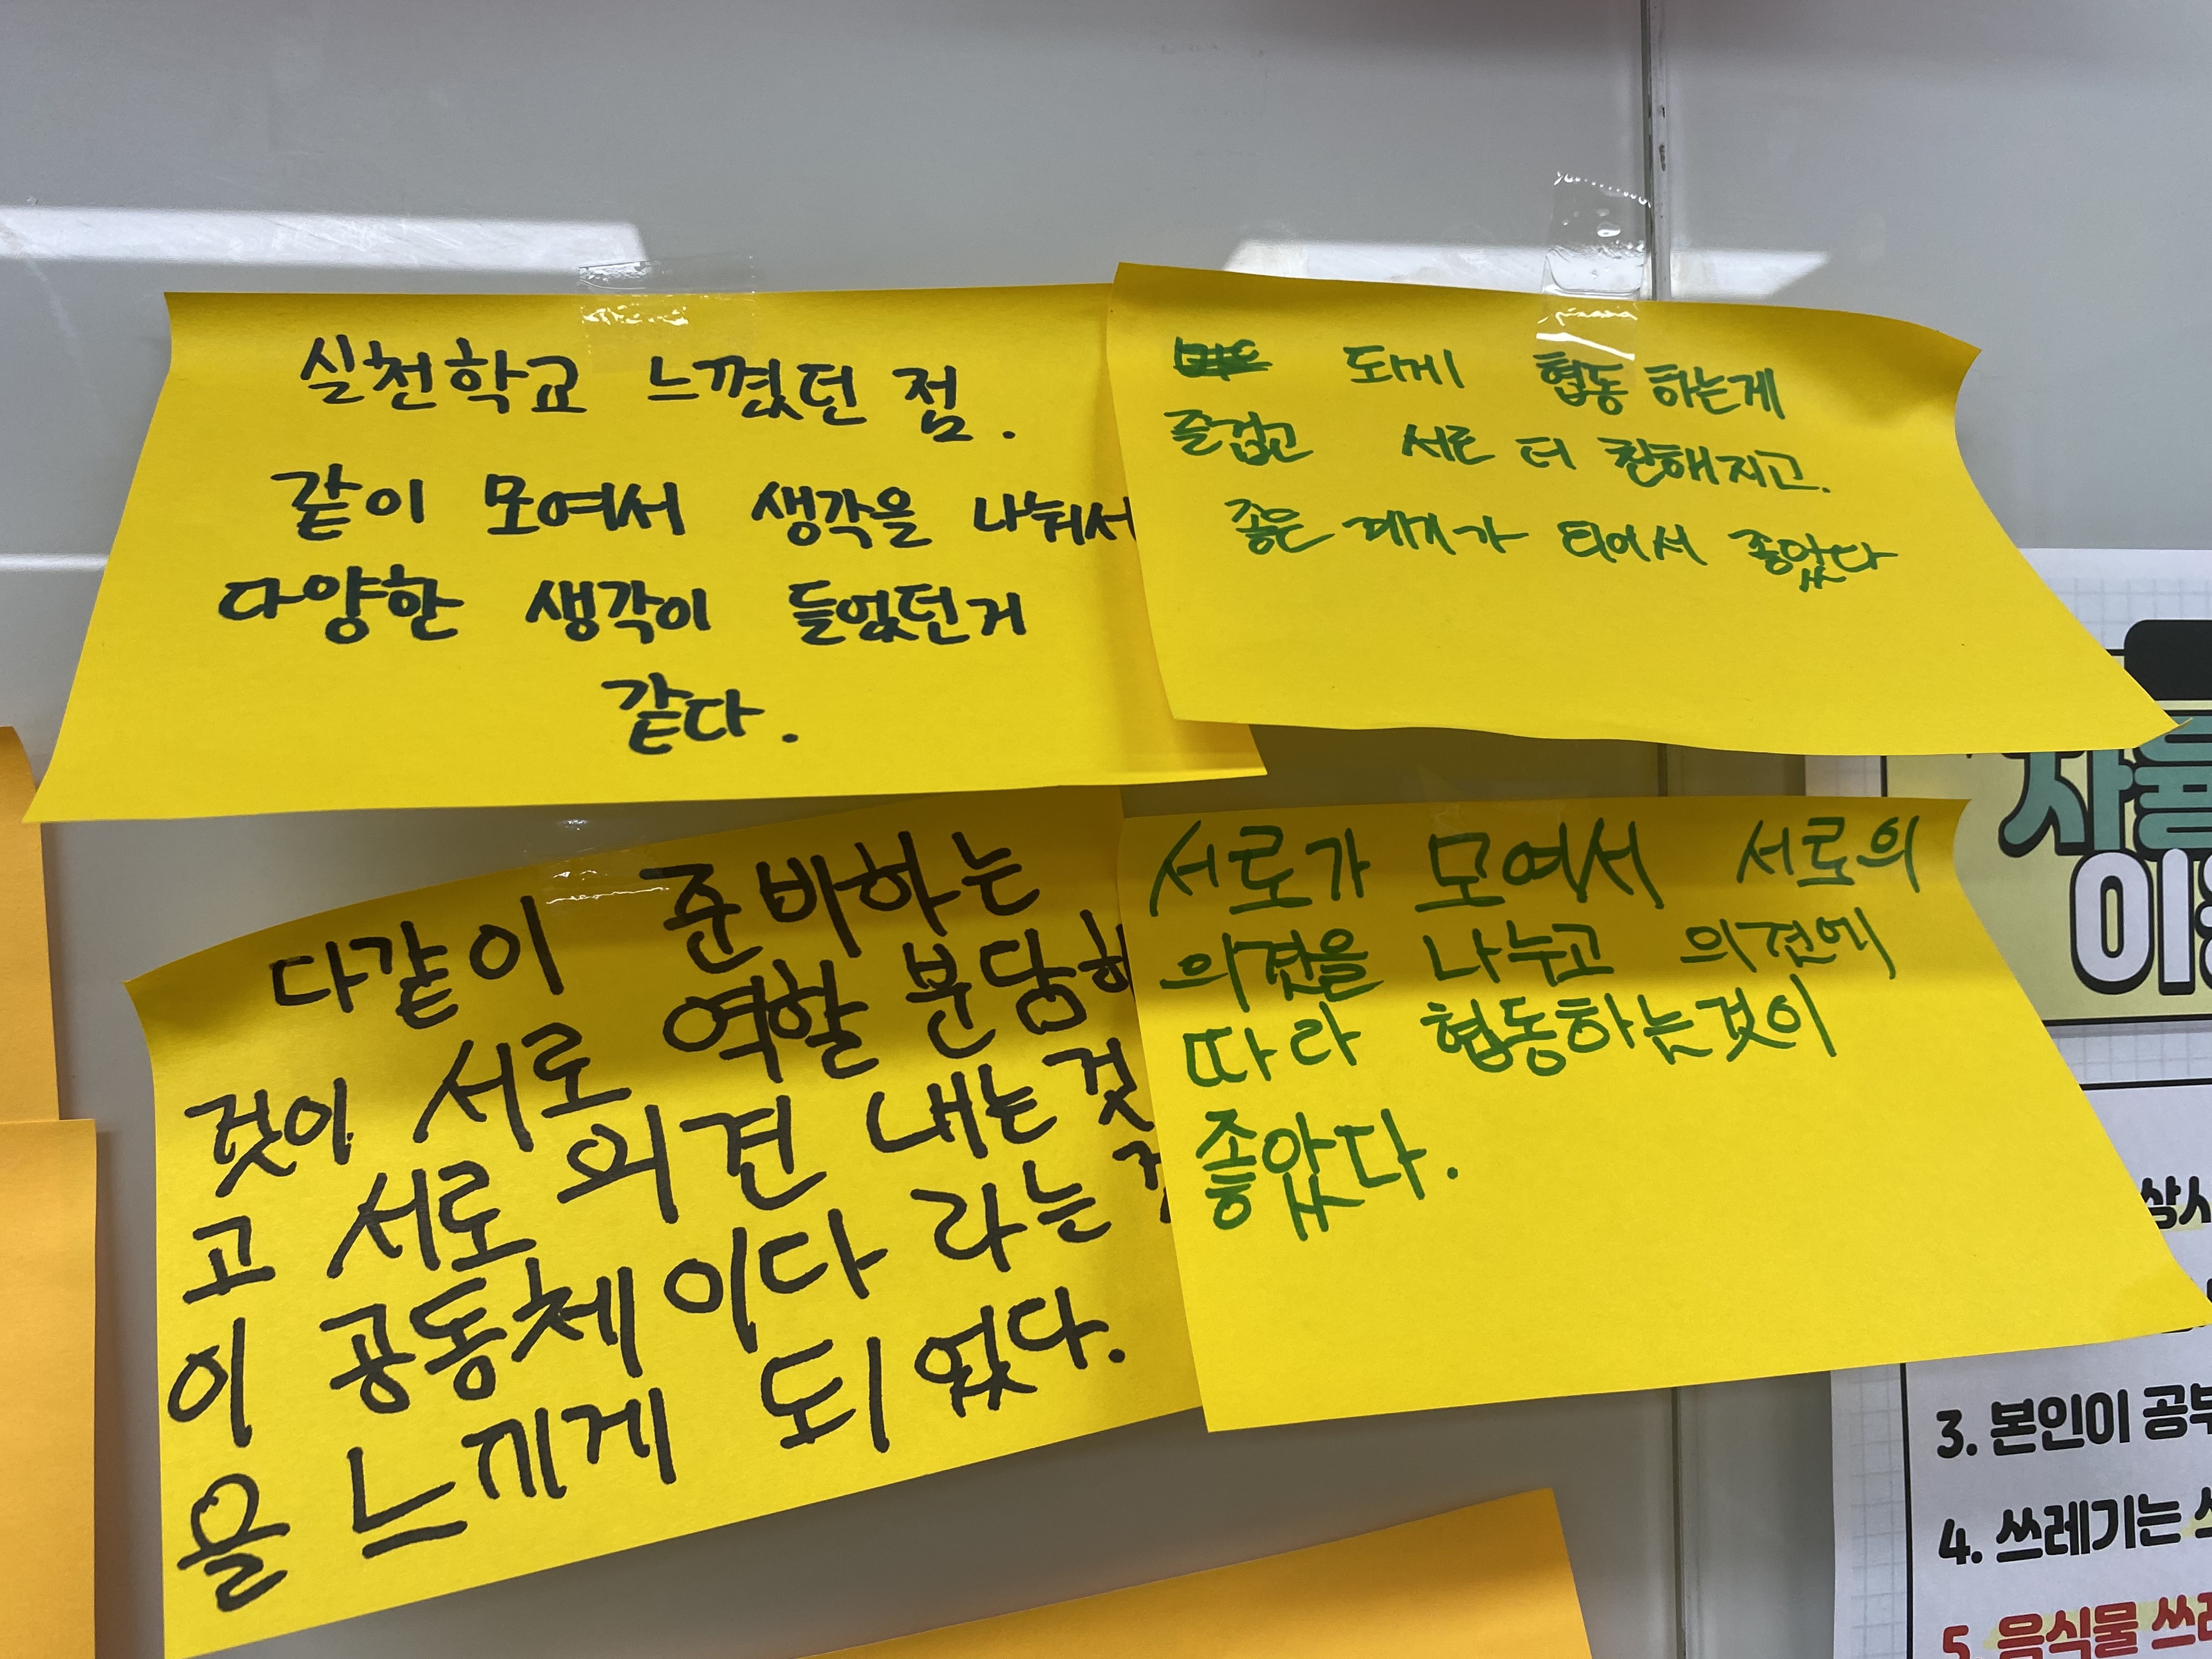 실천학교 느꼈던 점.
같이 모여서 생각을 나눠서
다양한 생각이 들었던거
같다.
되게 협동 하는게
즐겁고 서로 더 친해지고.
좋은 계기가 되어서 좋았다
다같이 준비하는
것이 서로 역할 분담하
고 서로 의견 내는 것
이 공동체 이다 라는
을 느끼게 되었다.
서로가 모여서 서로의
의견을 나누고 의견에
따라 협동하는것이
좋았다.
자율
이용
상시
3. 본인이 공부
4. 쓰레기는
5. 음식물 쓰레